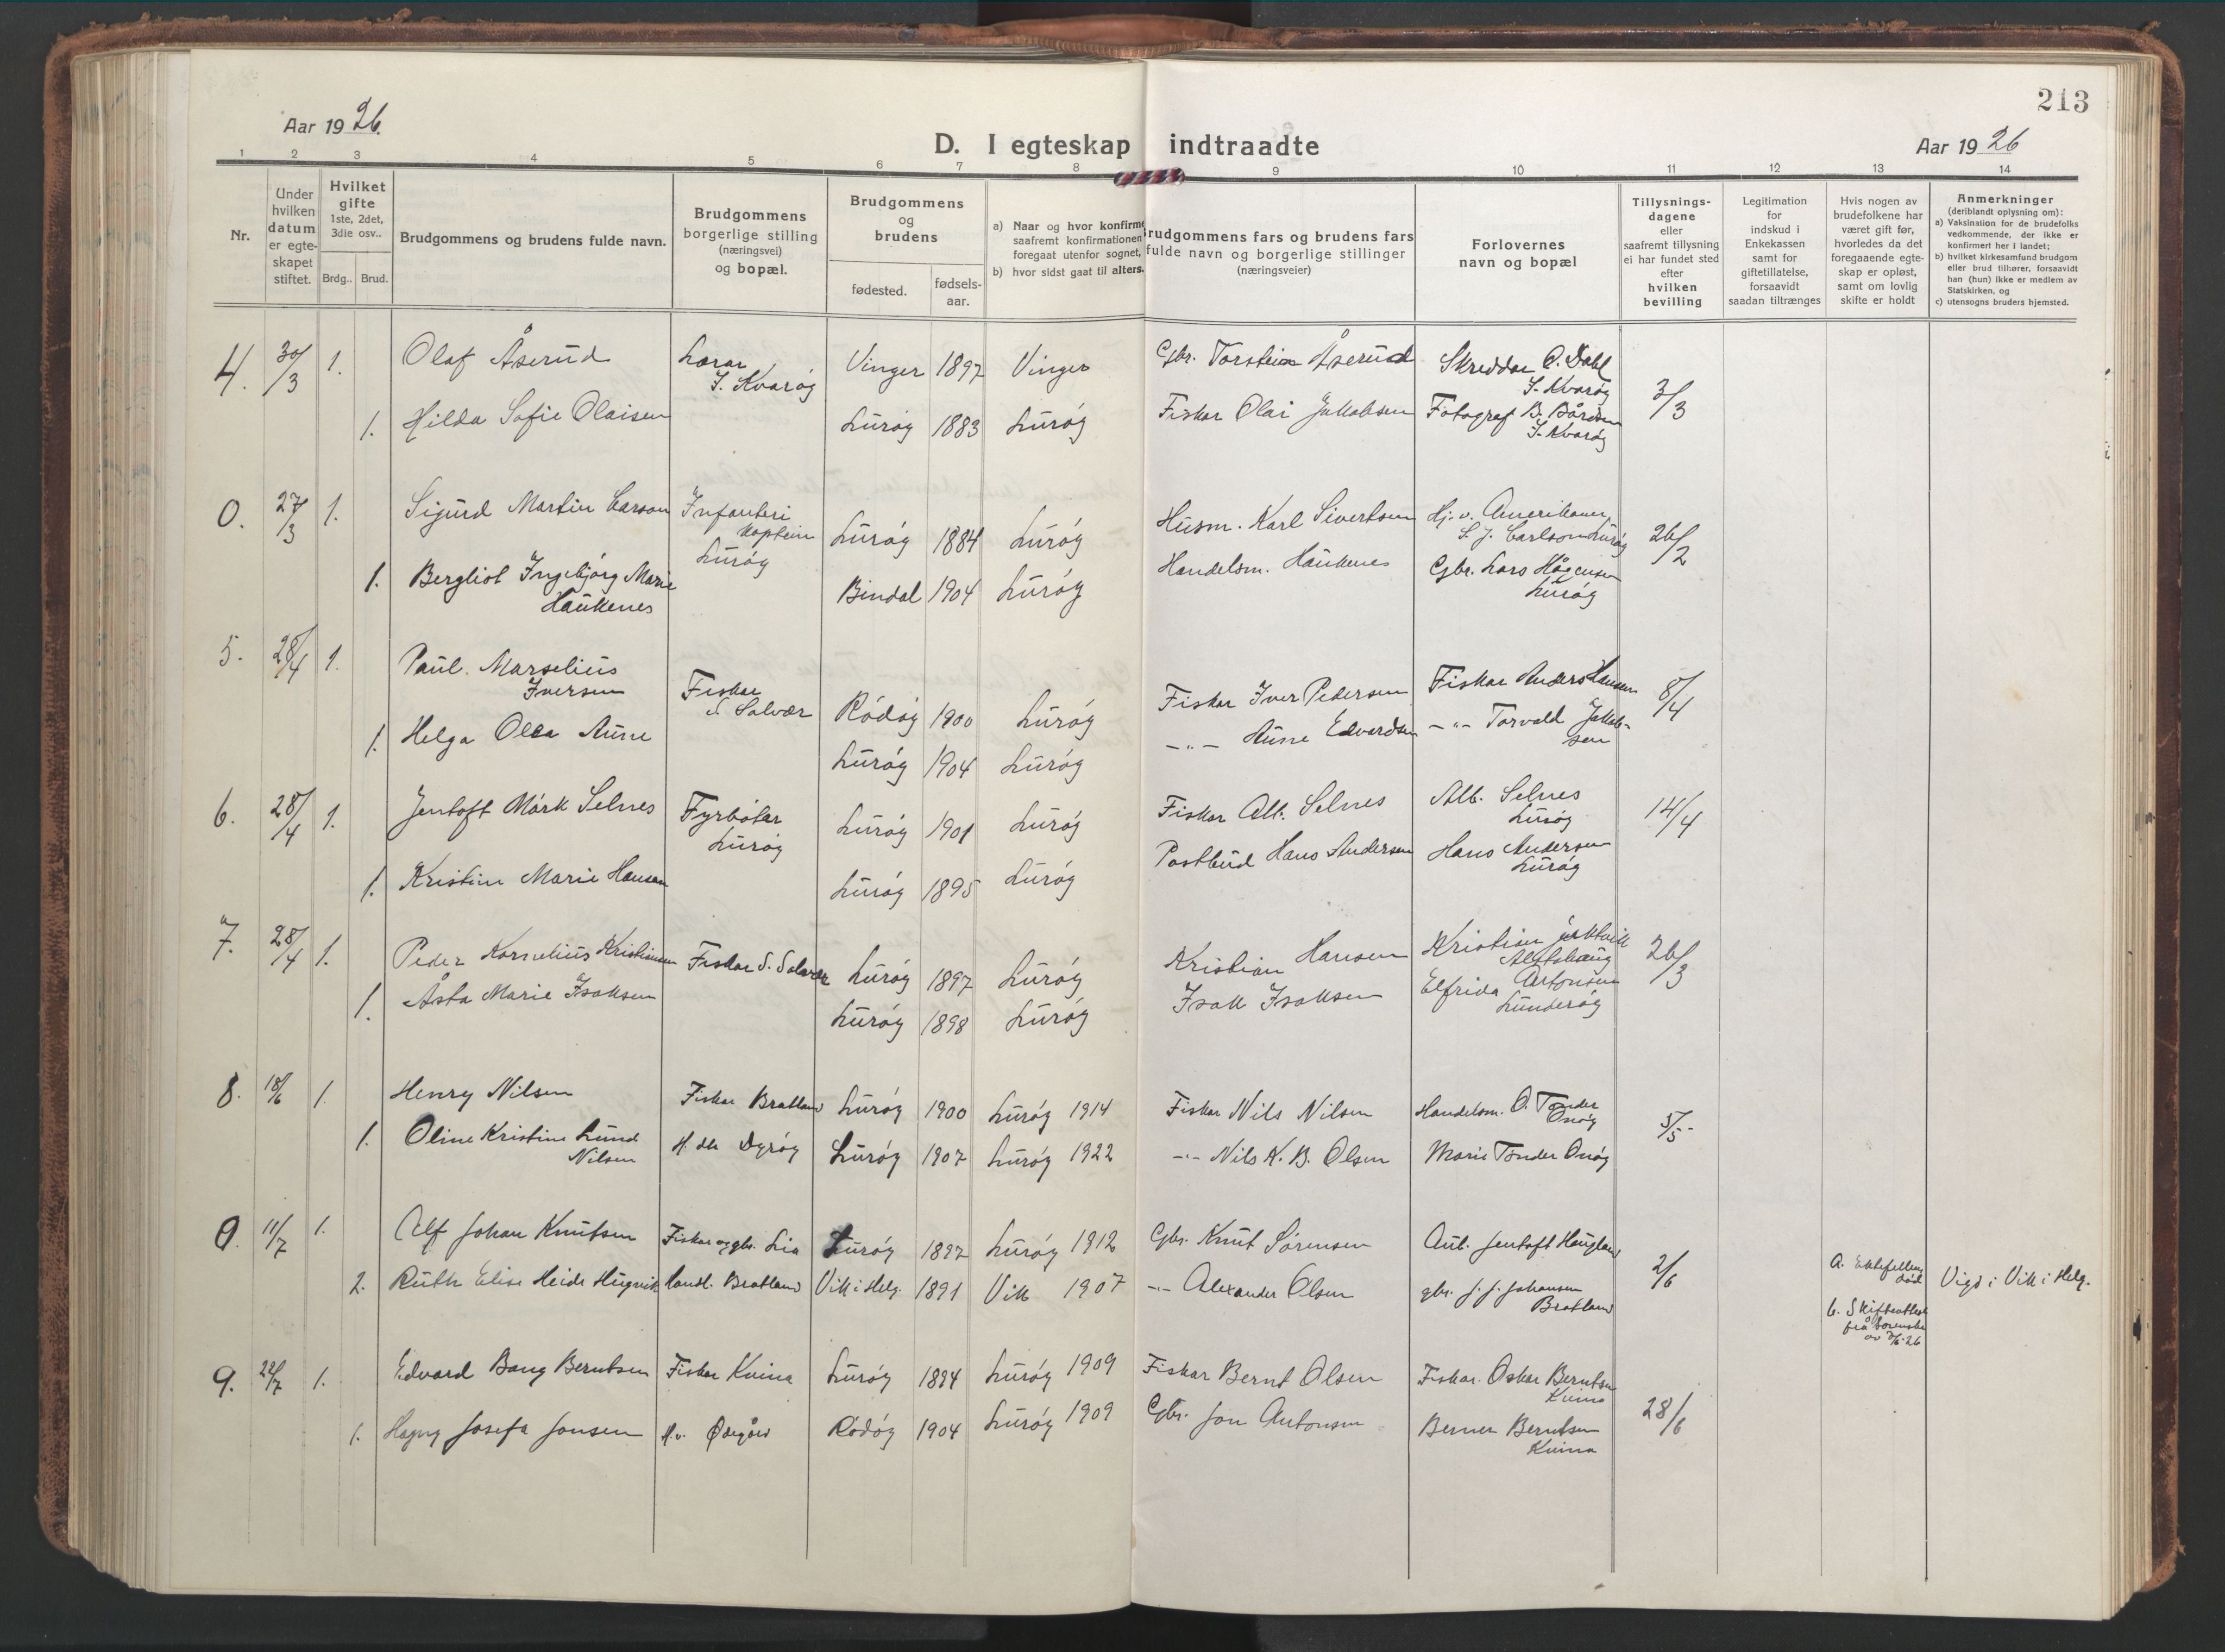 213
Aar 1926.
D. I egteskap indtraadte
Aar 1926
1 2 3 4 5 6 7 8 9 10 11 12 13 14
Nr.
Under hvilken datum er egteskapet stiftet.
Hvilket gifte 1ste, 2det, 3die osv..
Brdg.. Brud.
Brudgommens og brudens fulde navn.
Brudgommens borgerlige stilling (næringsvei) og bopæl.
Brudgommens og brudens
fødested. fødsels-aar.
a) Naar og hvor konfirme saafremt konfirmationen foregaat utenfor sognet,
b) hvor sidst gaat til alters.
rudgommens fars og brudens fars fulde navn og borgerlige stillinger (næringsveier)
Forlovernes navn og bopæl
Tillysnings-dagene eller saafremt tillysning ei har fundet sted efter hvilken bevilling
Legitimation for indskud i Enkekassen samt for giftetillatelse, forsaavidt saadan tiltrænges
Hvis nogen av brudefolkene har været gift før, hvorledes da det foregaaende egteskap er opløst, samt om lovlig skifte er holdt
Anmerkninger (deriblandt oplysning om):
a) Vaksination for de brudefolks vedkommende, der ikke er konfirmert her i landet;
b) hvilket kirkesamfund brudgom eller brud tilhører, forsaavidt han (hun) ikke er medlem av Statskirken, og
c) utensogns bruders hjemsted.
4. 30/3 1. Olaf Åserud Lærar S. Kvarøy Vinger 1897 Vinger Gbr. Torstein Åserud Skreddar O. Dahl S. Kvarøy 3/3
1. Hilda Sofie Olaisen Lurøy 1883 Lurøy Fiskar Olai Jakobsen Fotograf B. Bårdsen S. Kvarøy
0. 27/3 1. Sigurd Martin Carson Infanteri kaptein Lurøy Lurøy 1884 Lurøy Husm. Karl Sivertsen Hj. v. Amerikaner S. J. Carlson Lurøy 26/2
1. Bergliot Ingebjørg Marie Haukenes Bindal 1904 Lurøy Handelsm. Haukenes Gbr. Lars Hågensen Lurøy
5. 28/4 1. Paul Marselius Iversen Fiskar S. Solvær Rödöy 1900 Lurøy Fiskar Iver Pedersen Fiskar Anders Hansen 8/4
1. Helga Olea Aune Lurøy 1904 Lurøy —"— Aune Edvardsen —"— Torvald Jakobsen
6. 28/4 1. Jentoft Mörk Selnes Fyrböter Lurøy Lurøy 1901 Lurøy Fiskar Alb. Selnes Alb. Selnes Lurøy 14/4
1. Kristine Marie Hansen Lurøy 1895 Lurøy Postbud Hans Andersen Hans Andersen Lurøy
7. 28/4 1. Peder Kornelius Kristiansen Fiskar S. Solvær Lurøy 1897 Lurøy Kristian Hansen Kristian Alstahaug 26/3
1. Åsta Marie Isaksen Lurøy 1898 Lurøy Isak Isaksen Elfrida Antonsen Lunderøy
8. 18/6 1. Henry Nilsen Fiskar Bratland Lurøy 1900 Lurøy 1914 Fiskar Nils Nilsen Handelsm. O. Tønder Onøy 5/5
1. Oline Kristine Lund Nilsen H. dtr Dyrøy Lurøy 1907 Lurøy 1922 —"— Nils K. B. Olsen Marie Tønder Onøy
9. 11/7 1. Alf Johan Knutsen Fiskar og gbr. Lia Lurøy 1897 Lurøy 1912 Gbr. Knut Sørensen Aut. Jentoft Haugland 2/6
2. Ruth Elise Heide Hugvik Handl. Bratland Vik i Helg. 1891 Vik 1907 —"— Alexander Olsen gbr. J. J. Johansen Bratland A. Ektefellen død b. Skifteattest frå Sorenskr av 2/6-26 Vigd i Vik i Helg.
9. 22/7 1. Edvard Bang Berntsen Fiskar Kvina Lurøy 1894 Lurøy 1909 Fiskar Bernt Olsen Fiskar Oskar Berntsen Kvina 28/6
1. Josefa Jonsen H.v. Ødegård Rödöy 1904 Lurøy 1909 Gbr. Jon Antonsen Berner Berntsen Kvina